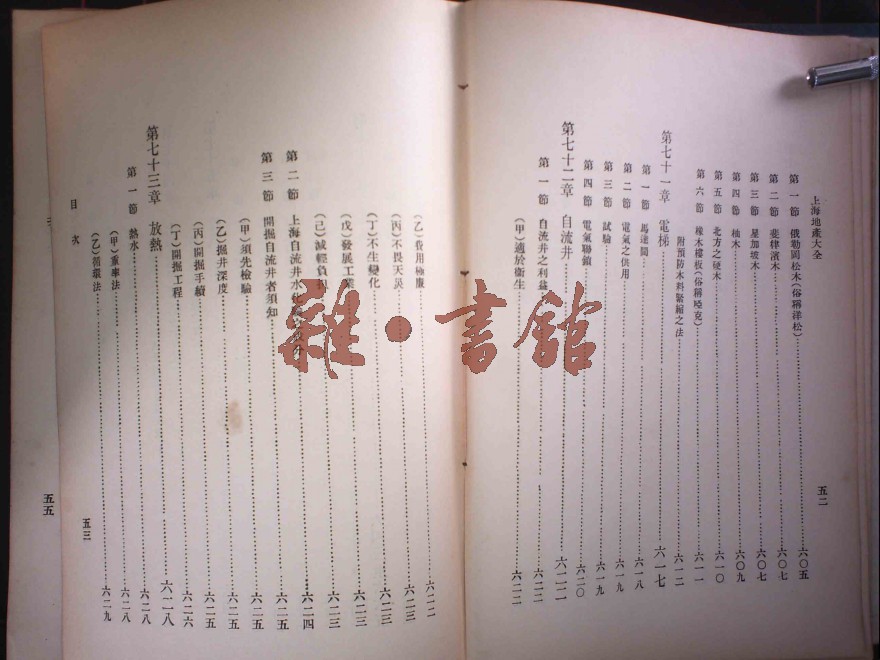 上海地產大全
五二
第一節 俄勒岡松木(俗稱洋松)……六〇五
第二節 斐律濱木……六〇七
第三節 星加坡木……六〇七
第四節 柚木……六〇九
第五節 北方之硬木……六一〇
第六節 橡木樓板(俗稱哑克)……六一一
附預防木料緊縮之法……六一二
第七十一章 電梯……六一七
第一節 馬達間……六一八
第二節 電氣之供用……六一九
第三節 試驗……六一九
第四節 電氣聯鎖……六二〇
第七十二章 自流井……六二二
第一節 自流井之利益……六二二
(甲)適於衛生……六二二
(乙)費用極廉……六二二
(丙)不畏天災……六二三
(丁)不生變化……六二三
(戊)發展工業……六二三
(己)減輕負担……六二三
第二節 上海自流井水化……六二四
第三節 開掘自流井者須知……六二五
(甲)須先檢驗……六二五
(乙)掘井深度……六二五
(丙)開掘手續……六二五
(丁)開掘工程……六二六
第七十三章 放熱……六二八
第一節 熱水……六二八
(甲)重率法……六二八
(乙)循環法……六二九
目次
五三
五五
雜·書館